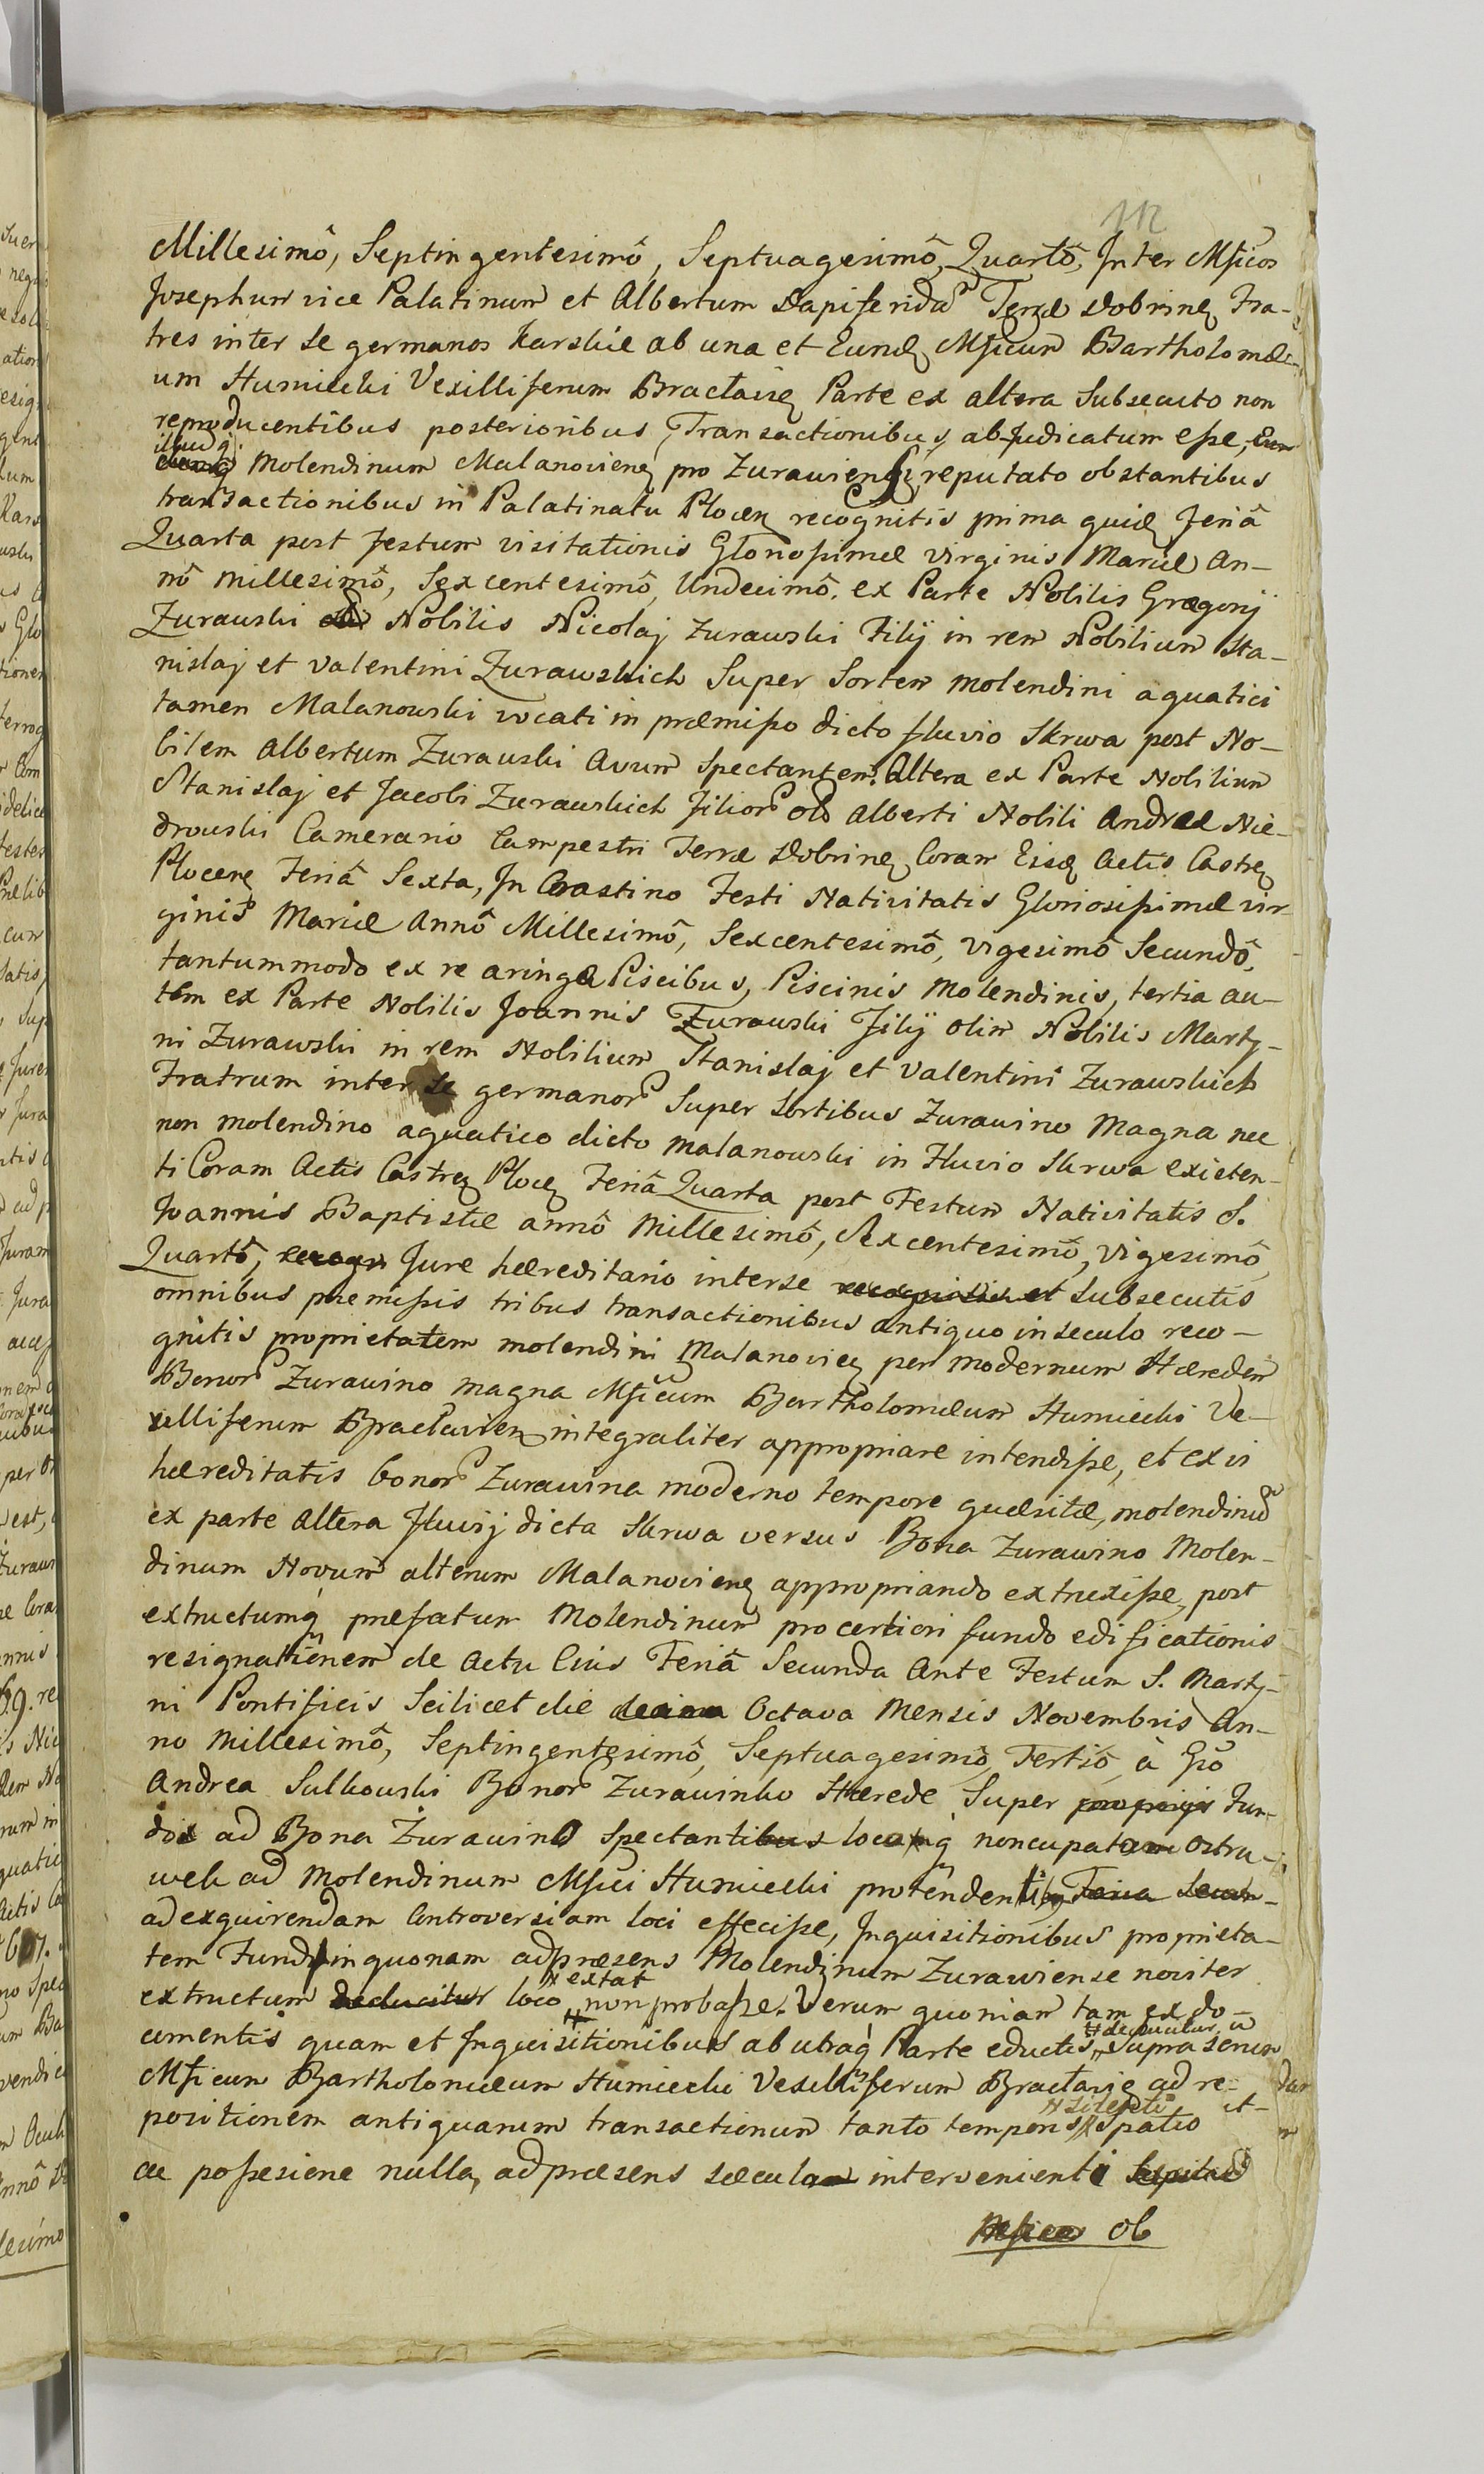 112
Millesimô, Septingentesimô, Septuagesimô, Quartô, Inter Mficos
Josephum vice Palatinum et Albertum Dapiferida Terræ Dobrinen Fra-
tres inter se germanos Karskie ab una et Eund Mficum Bartholomæ-
um Humiecki Vexilliferum Braclavien Parte ex altera Subsecuto non
reproducentibus posterioribus Transactionibus, abjudicatum eſse,
illudq
Molendinum Malanoviens pro Zurawiensi reputato obstantibus
transactionibus in Palatinatu Plocen recognitis prima quid Feriâ
Quarta post Festum visitationis Glorioſsimæ virginis Mariæ An-
nô Millesimô, Sexcentesimô, Undecimô. ex Parte Nobilis Gregorij
Zurawski Nobilis Nicolaj Zurawski Filij in rem Nobilium Sta-
nislaj et Valentini Zurawskich Super Sortem molendini aquatici
tamen Malanowski vocati in præmiſso dicto fluvio Skrwa post No-
bilem Albertum Zurawski Avum Spectantem. Altera ex Parte Nobilium
Stanislaj et Jacobi Zurawskich Filior olo Alberti Nobili Andreæ Nie-
drouski Camerario Campestri Terræ Dobrinen Coram Eisd Actis Castren
Plocens Feriâ Sexta, In Crastino Festi Nativitatis Gloriosiſsimæ vir-
ginis Mariæ Annô Millesimô, Sexcentesimô, vigesimô Secundô,
tantummodo ex re aringa Piscibus, Piscinis Molendinis, tertia au-
tem ex Parte Nobilis Joannis Zurawski Filij olim Nobilis Marty-
ni Zurawski in rem Nobilium Stanislaj et Valentini Zurawskich
Fratrum inter se germanor Super Sortibus Zurawino Magna nec
non molendino aquatico dicto Malanowski in Fluvio Skrwa existen-
ti Coram Actis Castren Plocen Feriâ Quarta post Festum Nativitatis S.
Joannis Baptistæ annô Millesimô, Sexcentesimô, vigesimô,
Quartô, recogn Jure hæreditario interse recognitis et subsecutis
omnibus præmiſsis tribus transactionibus antiquo in seculo reco-
gnitis proprietatem molendini Malanovien per modernum Hæredem
Bonor Zurawino magna Mficum Bartholomæum Humiecki Ve-
xilliferum Braclavien integraliter appropriare intendiſse, et ex vi
hæreditatis bonor Zurawina moderno tempore quæsitæ, molendinu
ex parte altera Fluvij dicta Skrwa versus Bona Zurawino Molen-
dinum Novum alterum Malanoviens appropriando extruxiſse, post
extructumq præfatum Molendinum pro certiori fundo edificationis
resignationem de Actu Cuius Feriâ Secunda Ante Festum S. Marty-
ni Pontificis Scilicet die decima Octava Mensis Novembris An-
no Millesimô, Septingentesimô, Septuagesimô, Tertiô, à Gſo
Andrea Sulkowski Bonor Zurawinko Hærede Super proprijs Fun-
dos ad Bona Zurawino Spectantibus locumq noncupatam Ostru-
wek ad Molendinum Mfici Humiecki protendenti Feria Secun-
ad exquirendam Controversiam loci effeciſse, Inquisitionibus proprieta-
tem Fundi in quonam adpræsens Molendinum Zurawiense noviter
extat
extructum deducitur loco non probaſse. Verum quoniam tam ex do-
deducitur
cumentis quam et Inquisitionibus ab utraq Parte eductis, Supra
Mficum Bartholomæum Humiecki Vexilliferum Braclavien ad re-
positionem antiquarum transactionum tanto temporis Spatio
ac poſsesione nulla, adpræsens sæculum intervenienti
Mficus ob